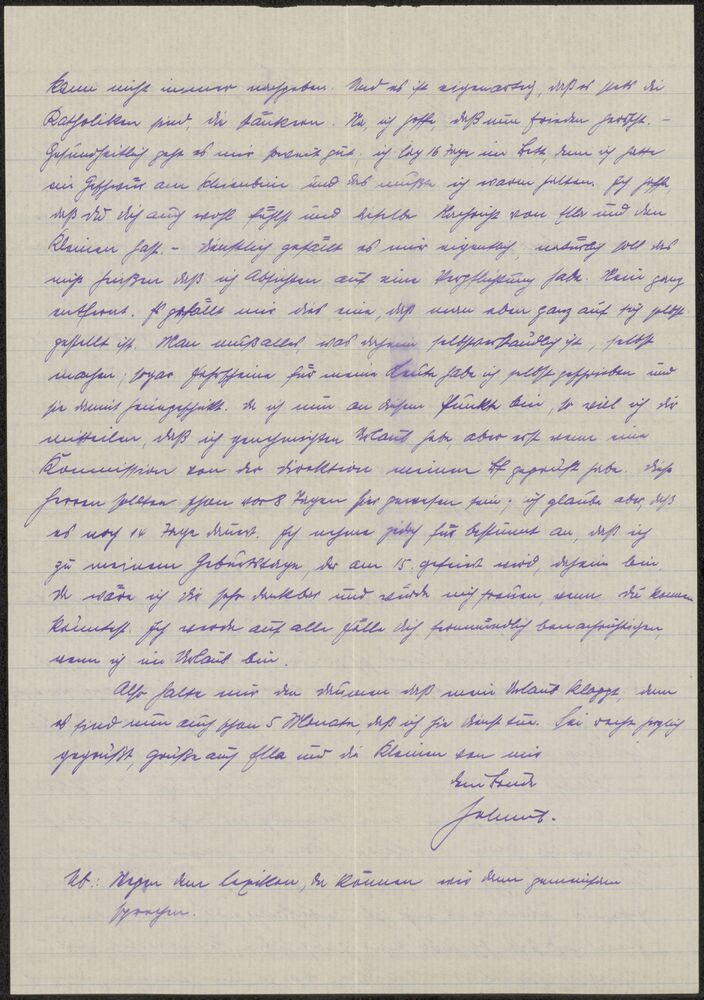 kann nicht immer nachgeben. Und es ist eigenartig, daß es stets die
Katholiken sind, die stänkern. Na, ich hoffe, daß nun Frieden herrscht. –
Gesundheitlich geht es mir soweit gut, ich lag 16 Tage im Bett, denn ich hatte
ein Geschwür am Schienbein und das mußte ich warm halten. Ich hoffe,
daß du dich auch wohl fühlst und dieselbe Nachricht von Ella und den
Kleinen hast. – Dienstlich gefällt es mir eigentlich, natürlich soll das
nicht heißen daß ich Absichten auf eine Verpflichtung habe. Nein ganz
entfernt. Es gefällt mir dies eine, daß man eben ganz auf sich selbst
gestellt ist. Man muß alles, was daheim selbstverständlich ist, selbst
machen; sogar Fahrscheine für meine Leute habe ich selbst geschrieben und
sie damit heimgeschickt. Da ich nun an diesem Punkte bin, so will ich dir
mitteilen, daß ich genehmigten Urlaub habe, aber erst wenn eine
Kommission von der Direktion meinen geprüft habe. Diese
Herren sollten schon vor 8 Tagen hier gewesen sein; ich glaube aber, daß
es noch 14 Tage dauert. Ich nehme jedoch für bestimmt an, daß ich
zu meinem Geburtstage, der am 15. gefeiert wird, daheim bin.
Da wäre ich dir sehr dankbar und würde mich freuen, wenn du kommen
könntest. Ich werde auf alle Fälle dich fernmündlich benachrichtigen,
wenn ich im Urlaub bin.
Also halte mir den Daumen daß mein Urlaub klappt, denn
es sind nun auch schon 5 Monate, daß ich hier Dienst tue. Sei recht herzlich
gegrüßt, grüße auch Ella und die Kleinen von mir
dein Bruder
Helmut.
Nb.: Wegen dem Lexikon, da können wir dann gemeinsam
sprechen.